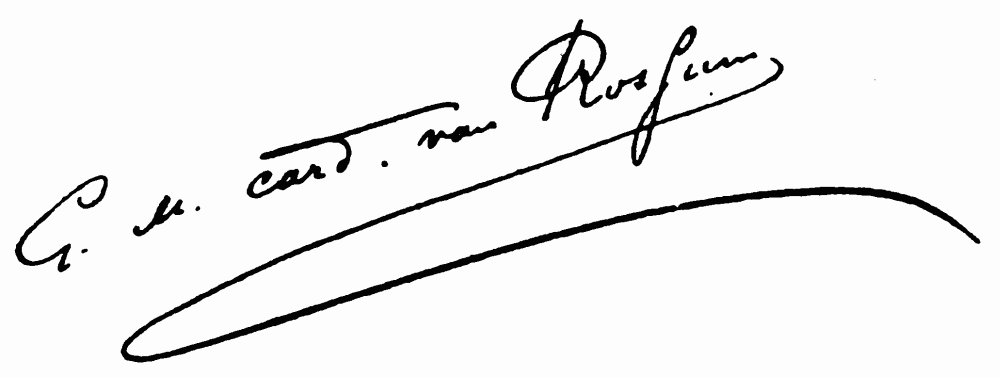 G. M. card. van Rossum